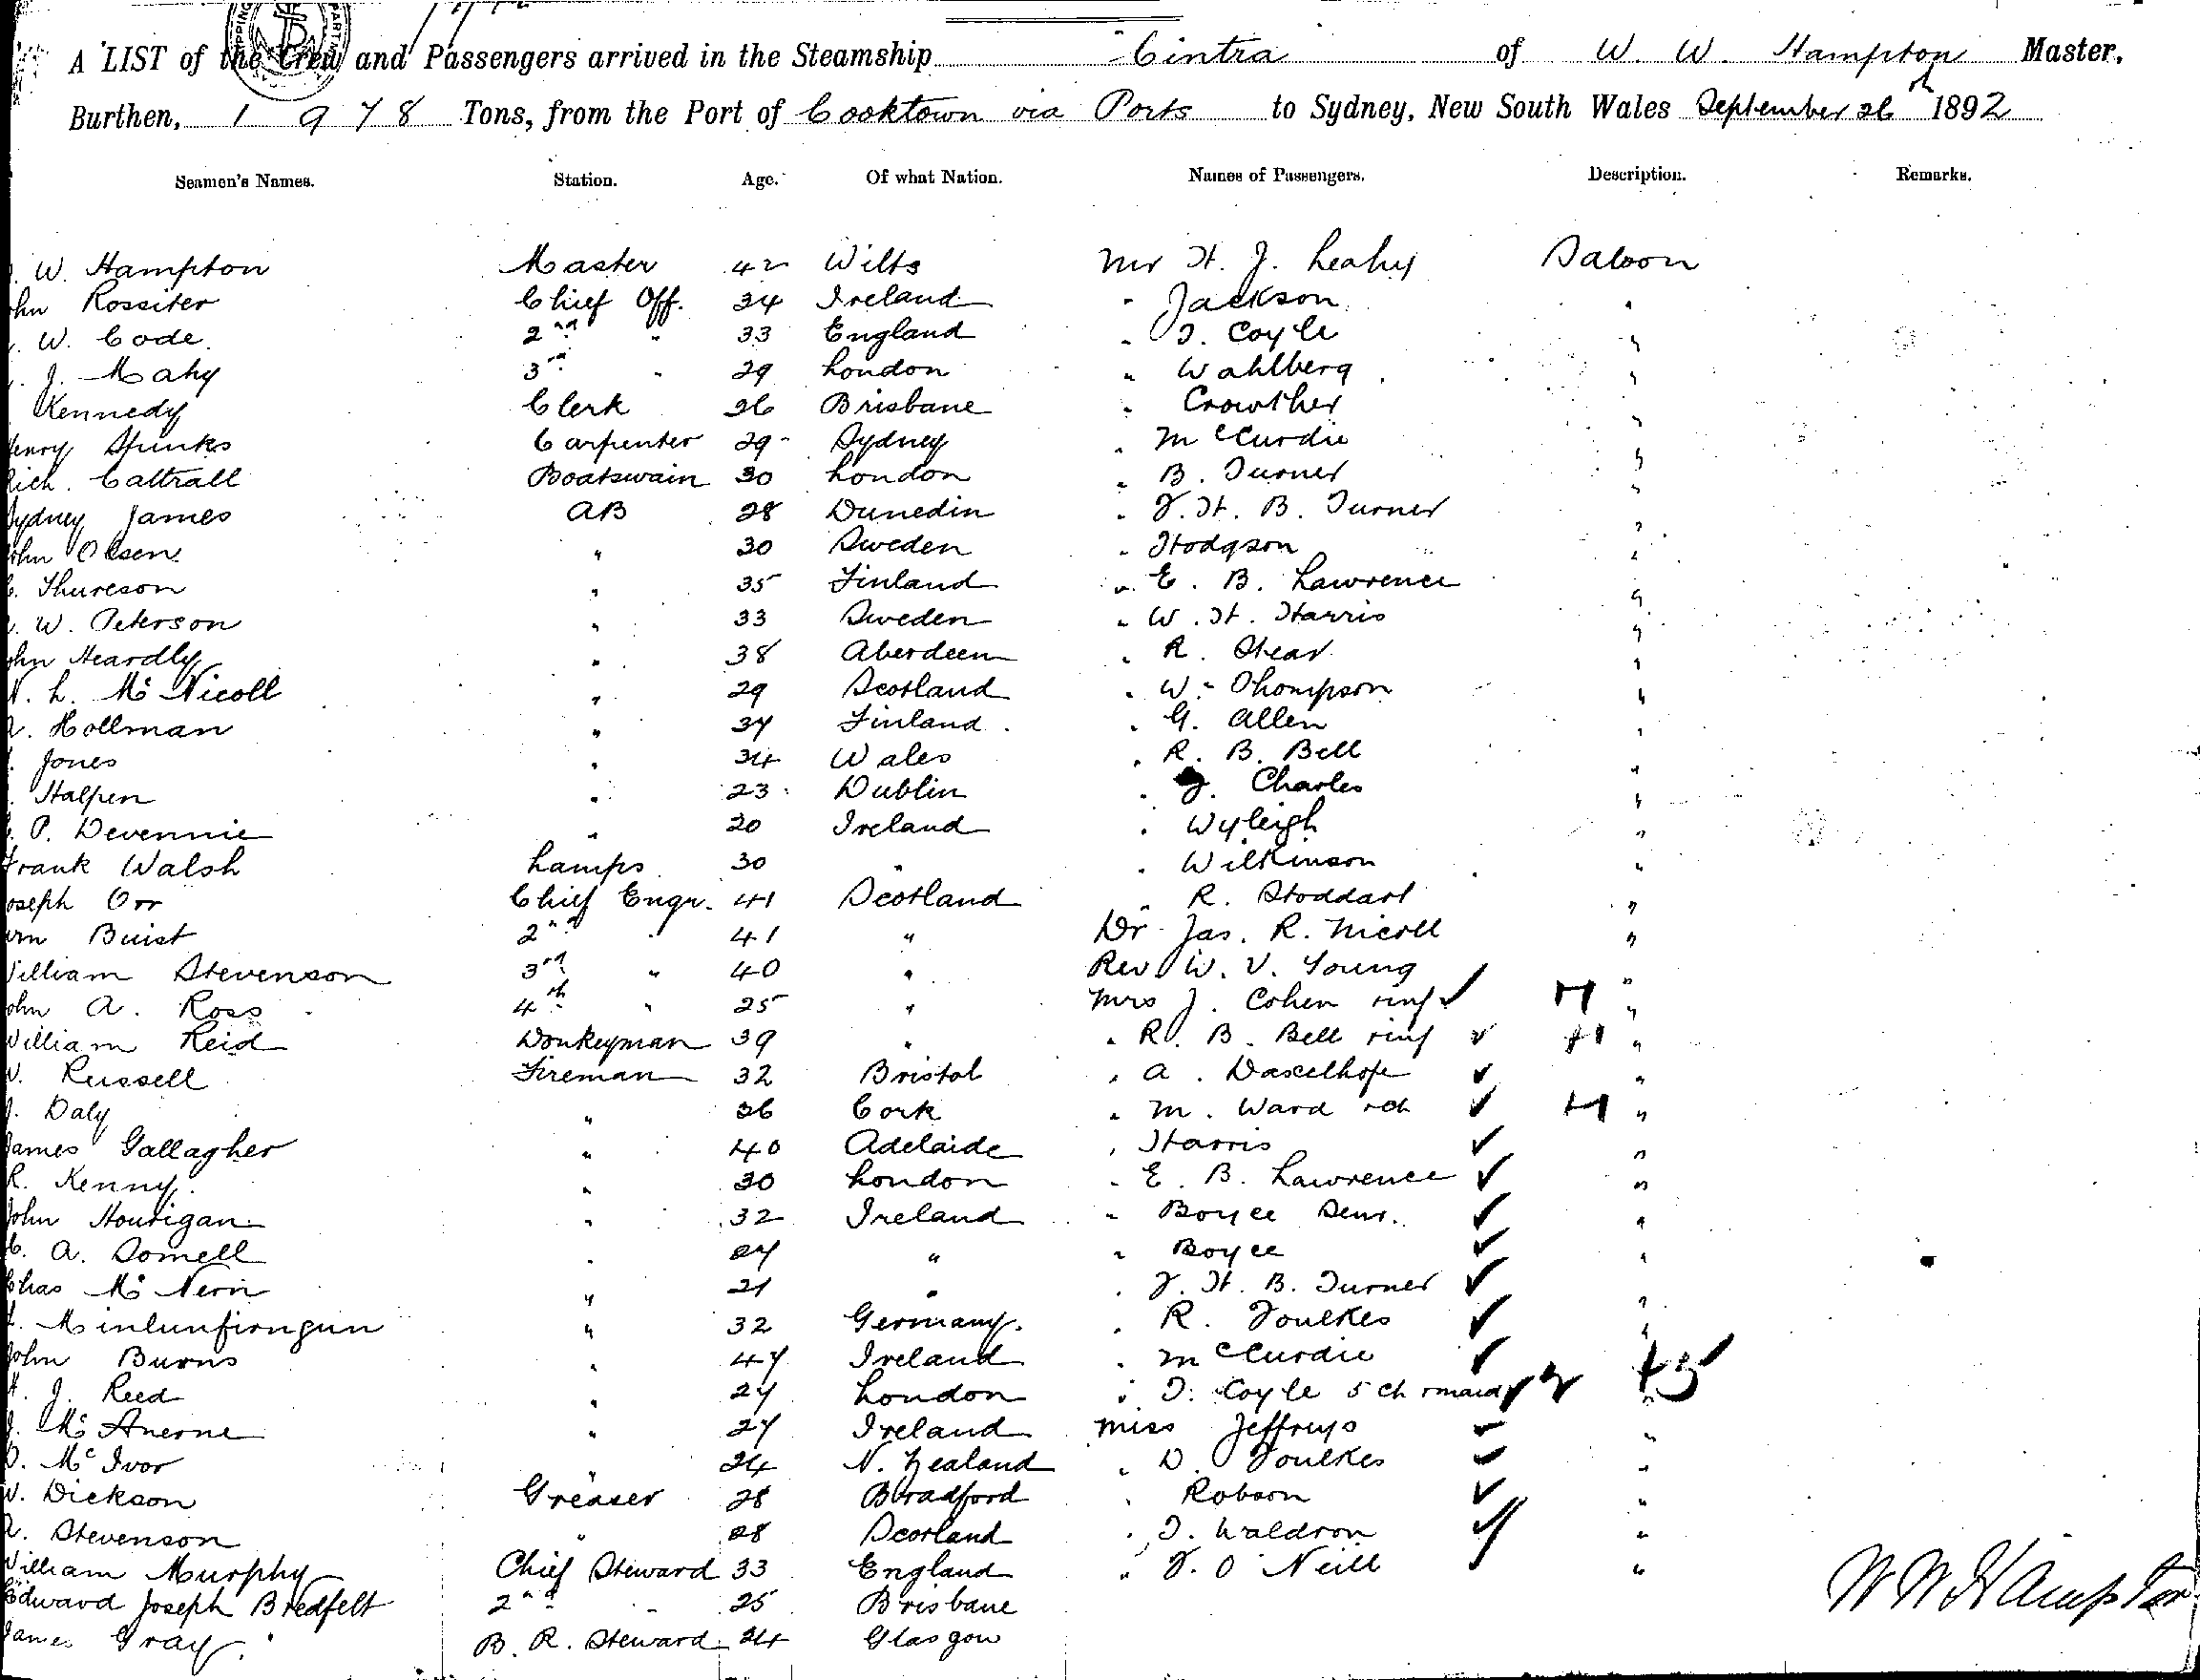 A LIST of the Crew and Passengers arrived in the Steamship Cintra of W. W. Hampton Master,
Burthen, 1978 Tons, from the Port of Cooktown via Ports to Sydney, New South Wales September 26th 1892
Seamen's Names. Station. Age. Of what Nation. Names of Passengers. Description. Remarks.
W. Hampton Master 42 Wilts Mr H. J. Leahy Saloon
hn Rossiter Chief Off. 34 Ireland " Jackson "
W. Code. 2nd " 33 England " T. Coyle "
J. Mahy 3rd " 29 London " Wahlberg "
Kennedy Clerk 26 Brisbane " Crowther "
enry Spinks Carpenter 29 Sydney " McCurdie "
Rich. Cattrall Boatswain 30 London " B. Turner "
Sydney James AB 28 Dunedin " F. H. B. Turner "
John Olsen " 30 Sweden " Hodgson "
Thureson " 35 Finland " E. B. Lawrence "
W. Peterson " 33 Sweden " W. H. Harris "
ohn Heardly " 38 Aberdeen " R. Shear "
L. McNicoll " 29 Scotland " W. Thompson "
Hollman " 37 Finland " G. Allen "
Jones " 34 Wales " R. B. Bell "
Halpen " 23 Dublin " J. Charles "
P. Devennie " 20 Ireland " Wyleigh "
Frank Walsh Lamps 30 " " Wilkinson "
oseph Orr Chief Engr. 41 Scotland " R. Stoddart "
Buist 2nd " 41 " Dr Jas. R. Nicoll "
William Stevenson 3rd " 40 " Rev W. V. Young "
ohn A. Ross 4th " 25 " Mrs J. Cohen H "
William Reid Donkeyman 39 " " R. B. Bell H "
W. Russell Fireman 32 Bristol " A. Daselhofe "
J. Daly " 26 Cork " M. Ward H "
James Gallagher " 40 Adelaide " Harris "
R. Kenny. " 30 London " E. B. Lawrence "
John Hourigan " 32 Ireland " Boyce Senr. "
A. Somell " 27 " " Boyce "
Chas McNern " 21 " " F. H. B. Turner "
" 32 Germany. " R. Foulkes "
John Burns " 47 Ireland " McCurdie "
J. Reed " 27 London " T. Coyle 5 ch maid 45 "
J. McAnerne " 27 Ireland Miss Jeffreys "
McIvor " 24 N. Zealand " D. Foulkes "
W. Dickson Greaser 28 Bradford " Robson "
Stevenson " 28 Scotland " T. Waldron "
William Murphy Chief Steward 33 England " F. O'Neill "
Edward Joseph Bredfelt 2nd " 25 Brisbane
James Gray. B. R. Steward 24 Glasgow
W W Hampton